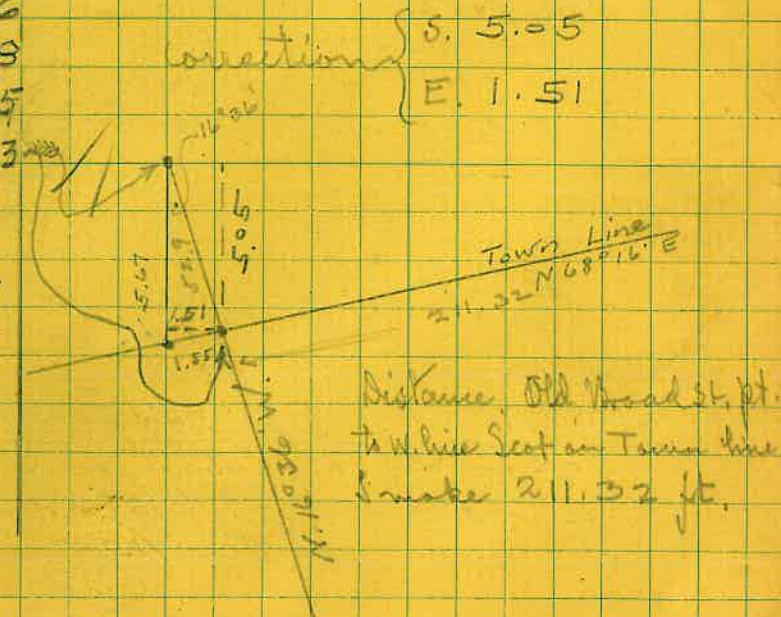 6
8
5
3
Correction { S. 5.05
E. 1.51
16°36'
5.05
5.67
1.51
1.55
Town Line
211.32 N 68° 16' E
N. 16° 36' W.
Distance Old Broad St. pt.
to W. line Scot on Town line
I make 211.32 ft.